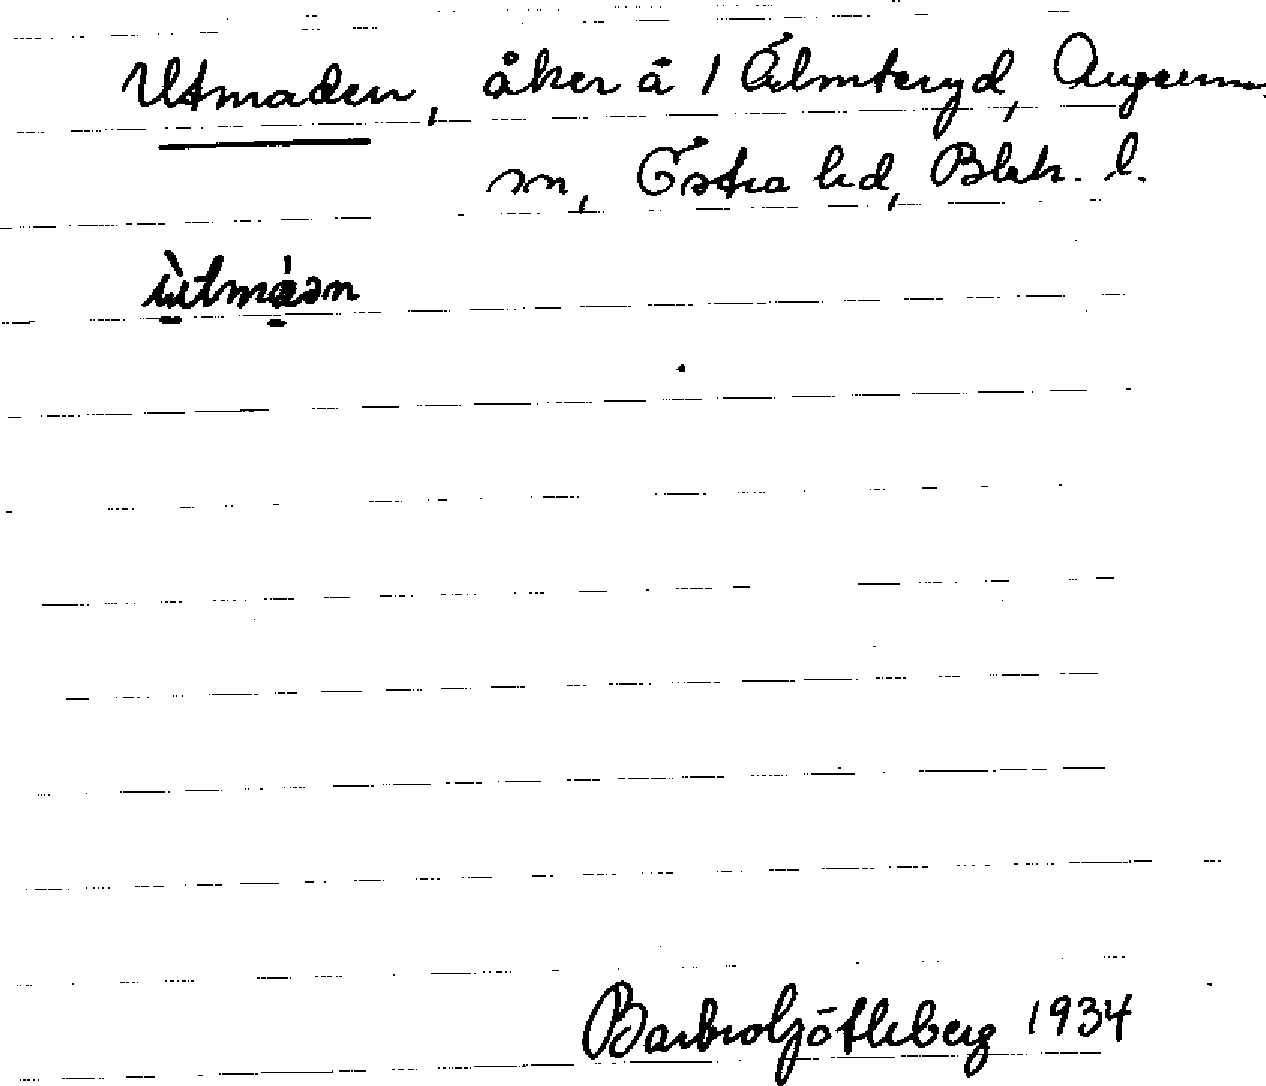 Utmaden, åker å 1 Älmteryd, Augerum
sn, Östra hd, Blek. l.
ùtmáən
Barbro Götleberg 1934